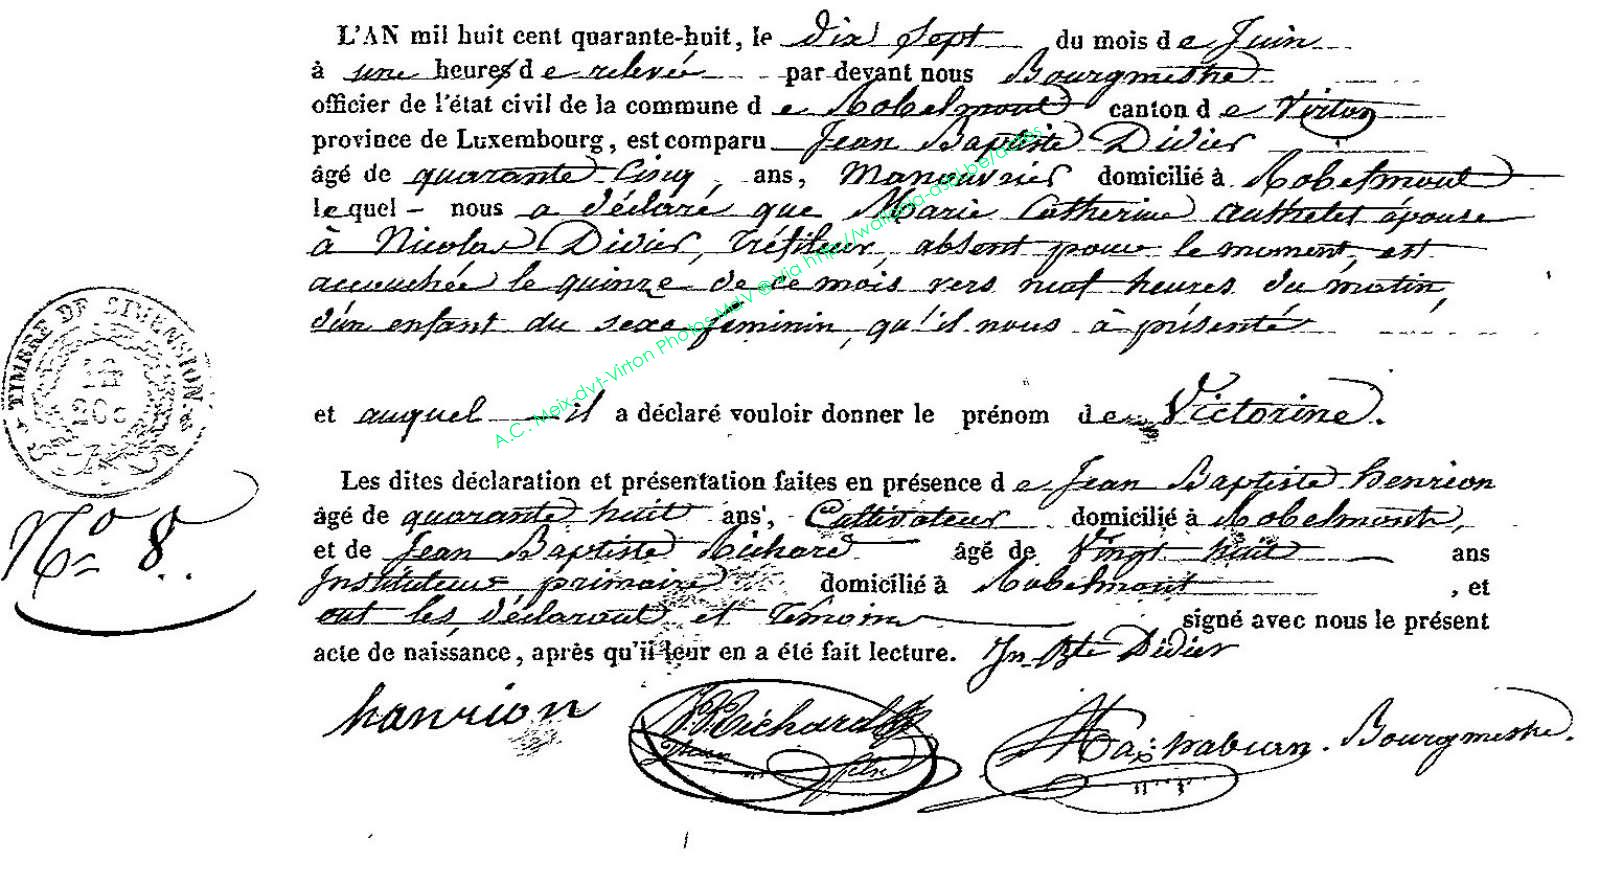 L'AN mil huit cent quarante-huit, le dix sept du mois de Juin
à une heures de relevée par devant nous Bourgmestre
officier de l'état civil de la commune de Robelmont canton de Virton
province de Luxembourg, est comparu Jean Baptiste Didier
âgé de quarante Cinq, ans, Manouvrier domicilié à Robelmont
lequel – nous a déclaré que Marie Catherine épouse
à Nicolas Didier, tréfileur, absent pour le moment, est
accouchée le quinze de ce mois vers neuf heures du matin,
d'un enfant du sexe féminin, qu'il nous à présenté
et auquel il a déclaré vouloir donner le prénom de Victorine.
Les dites déclaration et présentation faites en présence de Jean Baptiste henrion
âgé de quarante huit ans, Cultivateur domicilié à Robelmont,
et de Jean Baptiste Richard âgé de Vingt huit ans
Instituteur primaire domicilié à Robelmont, et
ont les déclarant et témoins signé avec nous le présent
acte de naissance, après qu'il leur en a été fait lecture. Jn Bte Didier
hanrion Richard Bourgmestre.
TIMBRE DE DIMENSION
20 C
No 8.
A.C. Meix-dvt-Virton Photos MdV @ Via http://wallonia-asbl.be/actes